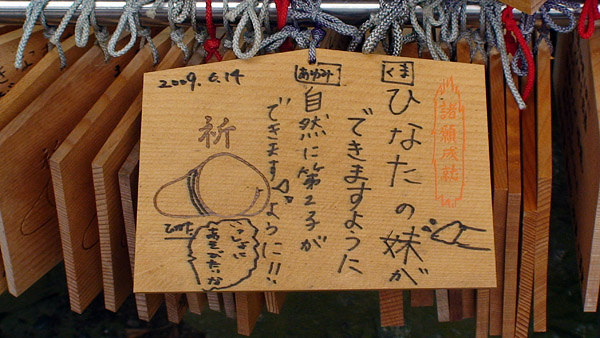 諸願成就
くま
ひなたの妹が
できますように
あゆみ
自然に第2子が
できますように!!
2009.6.14
祈
ひなた
いっしょに
あそびたいな